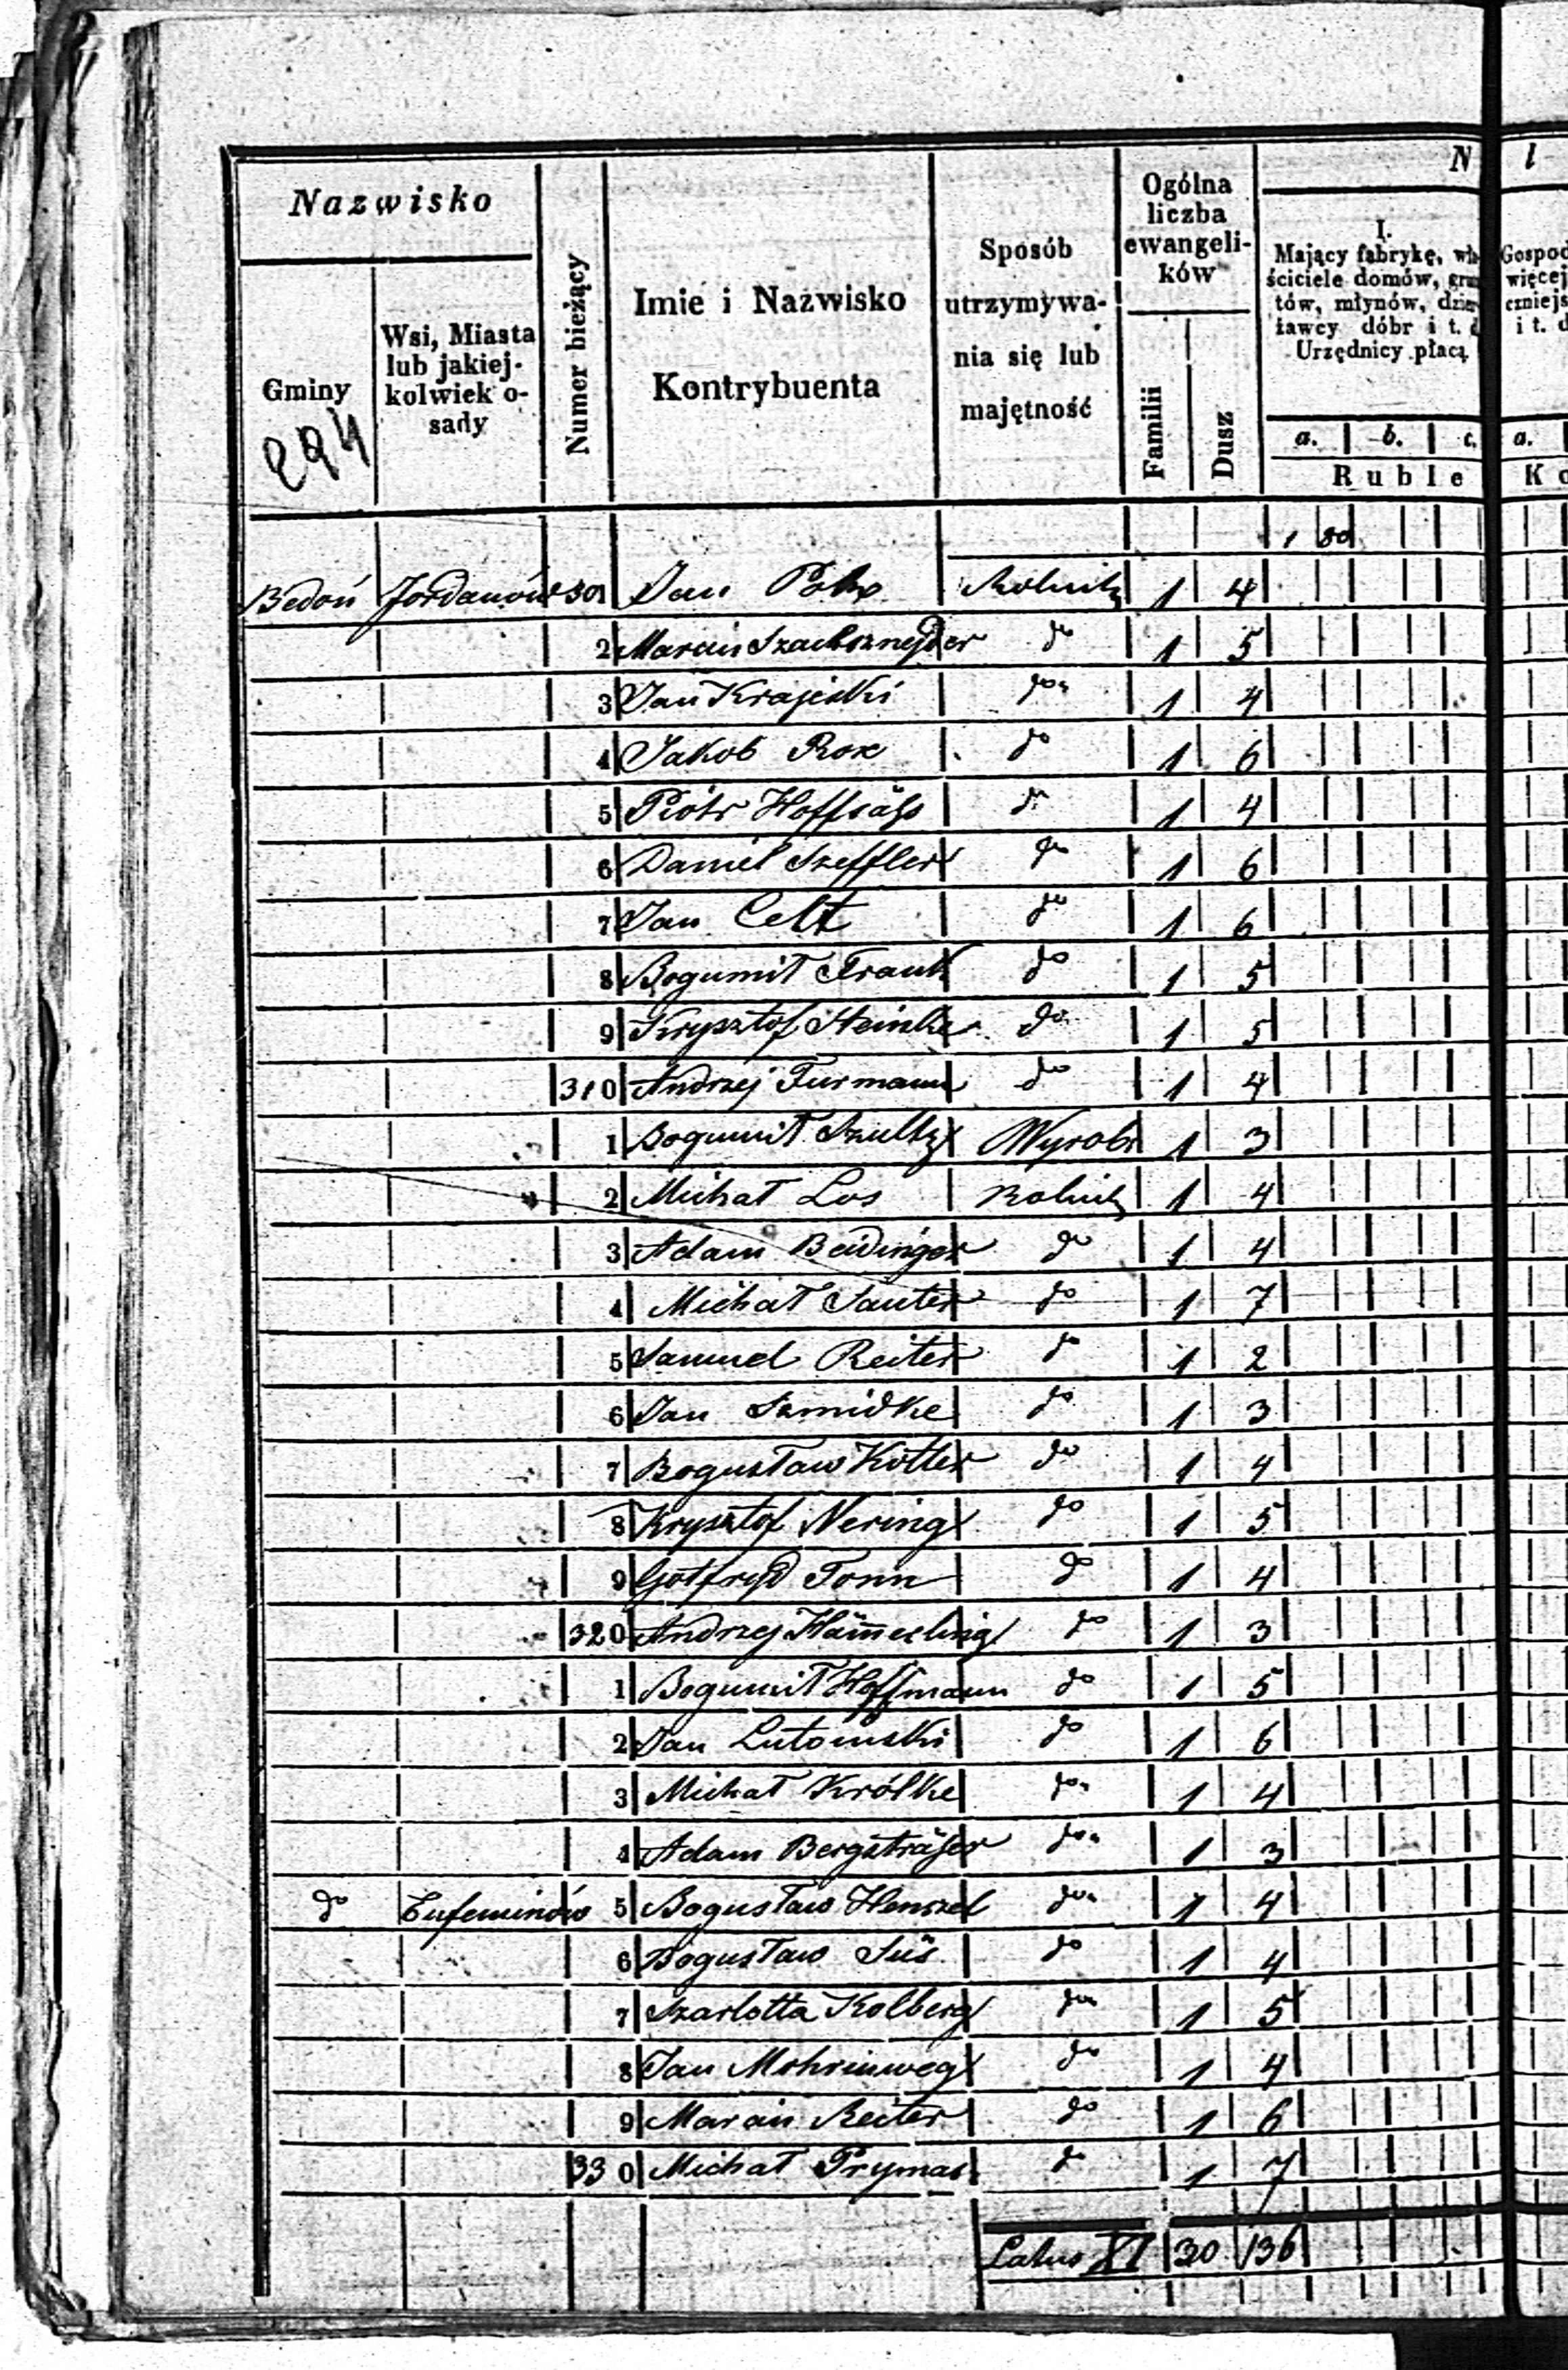 Nazwisko
Gminy
294
Wsi, Miasta lub jakiej-
kolwiek o-
sady
Numer bieżący
Imie i Nazwisko
Kontrybuenta
Sposób
utrzymywa-
nia się lub
majętność
Ogólna
liczba
ewangeli-
ków
Familii
Dusz
N
I.
Mający fabrykę, wła-
ściciele domów, grun-
tów, młynów, dzier-
żawcy dóbr i t. d.
Urzędnicy płacą
a. b. c.
Ruble
l
Gospod
więcej
czniejs
i t. d
a.
Ko
1 80
Bedoń Jordanów 301 Jan Rolnik 1 4
2 Marcin Szachsznejder do 1 5
3 Jan Krajeski do 1 4
4 Jakob Rox do 1 6
5 Piotr Hoffsäss do 1 4
6 Daniel Szeffler do 1 6
7 Jan Celt do 1 6
8 Bogumił Frank do 1 5
9 Krysztof Steinke do 1 5
310 Andrzej Furmann do 1 4
1 Bogumił Szultz Wyrobn 1 3
2 Michał Los Rolnik 1 4
3 Adam Beidinger do 1 4
4 Michał Sauter do 1 7
5 Samuel Reiter do 1 2
6 Jan Szmidke do 1 3
7 Bogusław Kotler do 1 4
8 Krysztof Nering do 1 5
9 Gotfryd Tonn do 1 4
320 Andrzej Häm̄erling do 1 3
1 Bogumił Hoffmann do 1 5
2 Jan Lutomski do 1 6
3 Michał Krölke do 1 4
4 Adam Bergsträser do 1 3
do Eufeminów 5 Bogusław Henszel do 1 4
6 Bogusław Süs do 1 4
7 Szarlotta Kolberg do 1 5
8 Jan Mohrinweg do 1 4
9 Marcin Reiter do 1 6
330 Michał Prymas do 1 7
Latus XI 30 136